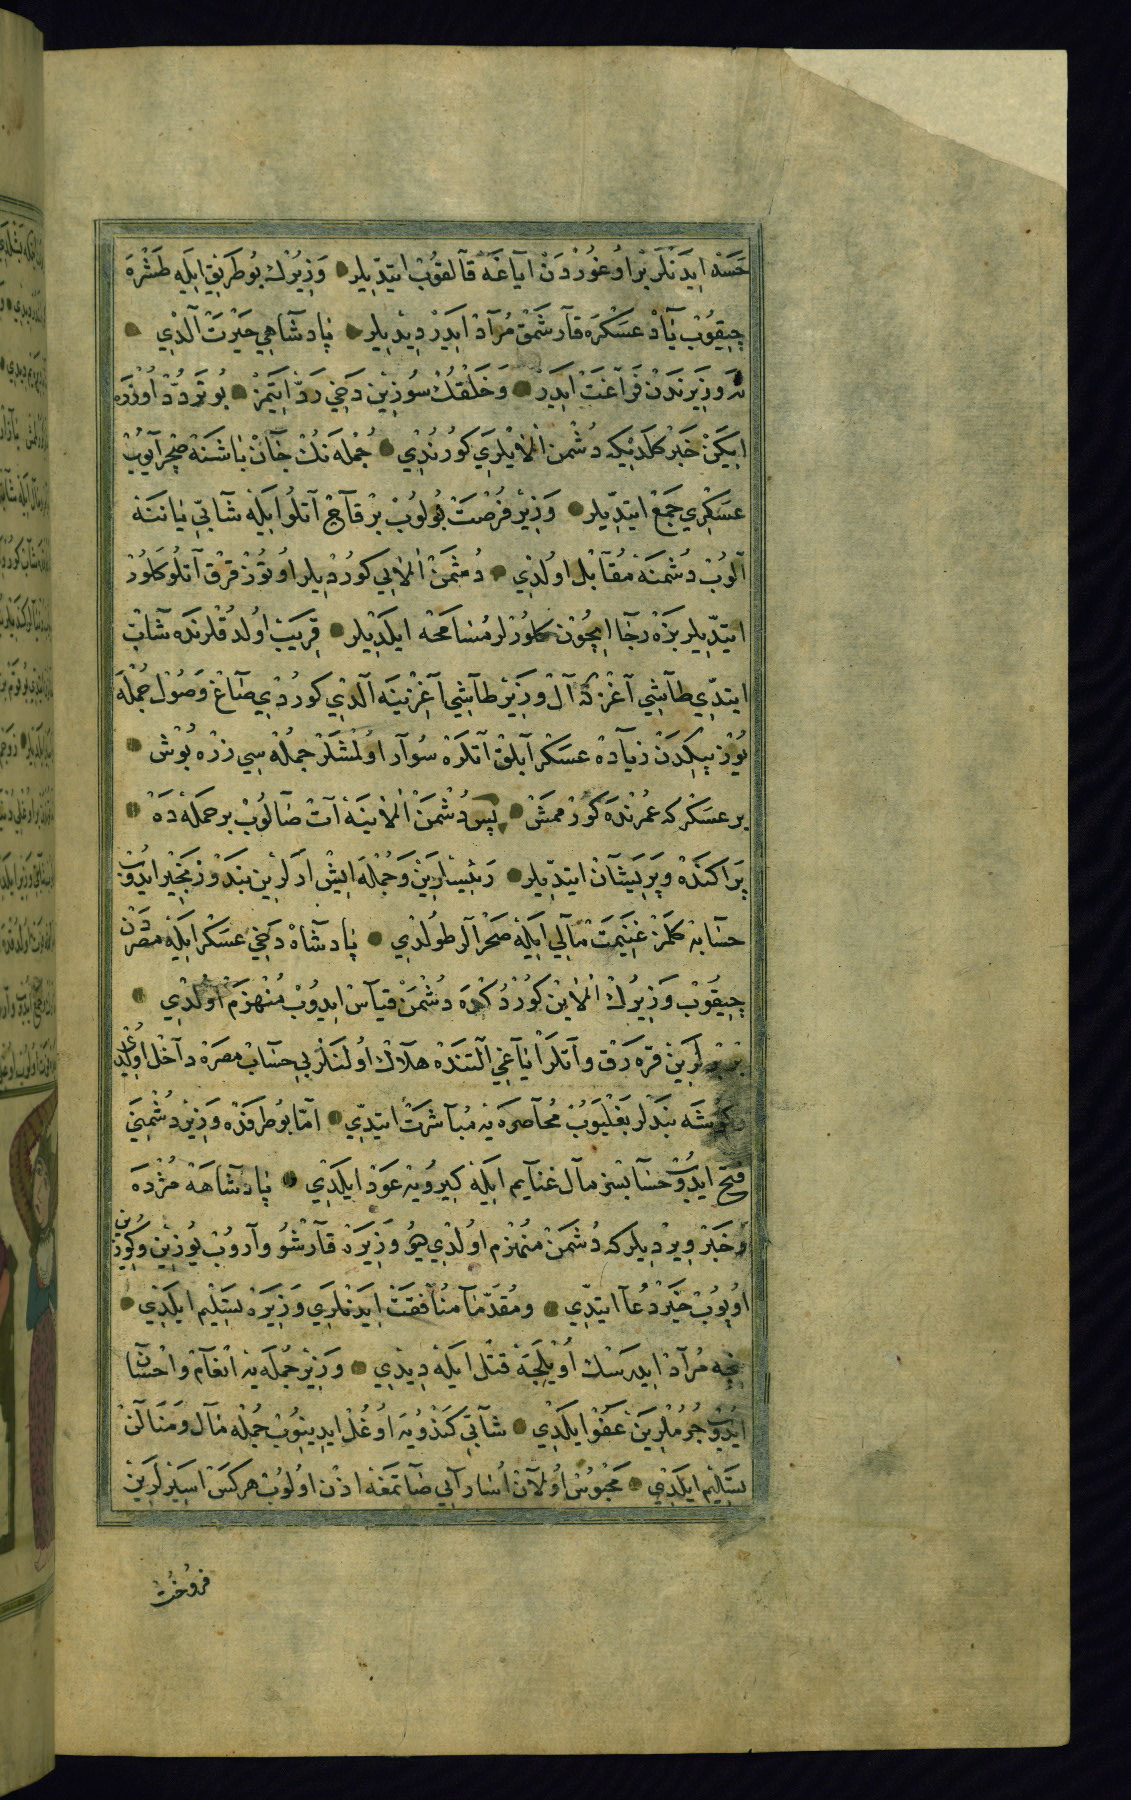 حسد ایدنلر بر اوغوردن ایاغه قالقوب ایتدیلر وزیرك بو طریق ایله طشره
چیقوب یاد عسكره قارشمق مراد ایدر دیدیلر پادشاهی حیرت آلدی
نه وزیرندن فراغت ایدر و خلقك سوزین دخی رد ایتمز بو تردد اوزره
ایكن خبر كلدیكه دشمن الایلری كورندی جمله نك جان باشنه صچرایوب
عسكری جمع ایتدیلر وزیر فرصت بولوب بر قاچ آتلو ایله شابی یاننه
آلوب دشمنه مقابل اولدی دشمن الایی كوردیلر اوتوز قرق آتلو كلور
ایتدیلر بزه رجا ایچون كلورلر مسامحه ایلدیلر قریب اولدقلرنده شاب
ایتدی طاشی آغزكه آل وزیر طاشی آغزینه آلدی كوردی صاغ وصول جمله
یوز بیكدن زیاده عسكر آبلق آتلره سوار اولمشلر جمله سی زره پوش
بر عسكر كه عمرنده كورممش پس دشمن الاینه آت صالوب بر حمله ده
پراكنده و پریشان ایتدیلر رئیسلرین و جمله ایش ارلرین بند و زنجیر ایدوب
حسابه كلمز غنیمت مالی ایله صحرالر طولدی پادشاه دخی عسكر ایله مصردن
چیقوب وزیرك الاین كوردكده دشمن قیاس ایدوب منهزم اولدی
بربرلرین قره رق و آتلر ایاغی التنده هلاك اولنلر بی حساب مصره داخل اولدی
كوشه بندلر بغلیوب محاصره یه مباشرت ایتدی اما بو طرفده وزیر دشمنی
فتح ایدوب حسابسز مال غنایم ایله كیرویه عود ایلدی پادشاهه مژده
و خبر ویردیلر كه دشمن منهزم اولدی هو وزیره قارشو واروب یوزین و كوزین
اوپوب خیر دعا ایتدی و مقدما منافقت ایدنلری وزیره تسلیم ایلدی
نیجه مراد ایدرسك اویلجه قتل ایله دیدی وزیر جمله یه انعام و احسان
ایدوب جرملرین عفو ایلدی شابی كندویه اوغل ایدینوب جمله مال و منالن
تسلیم ایلدی محبوس اولان اسارایی صاتمغه اذن اولوب هركس اسیرلرین
فروخت